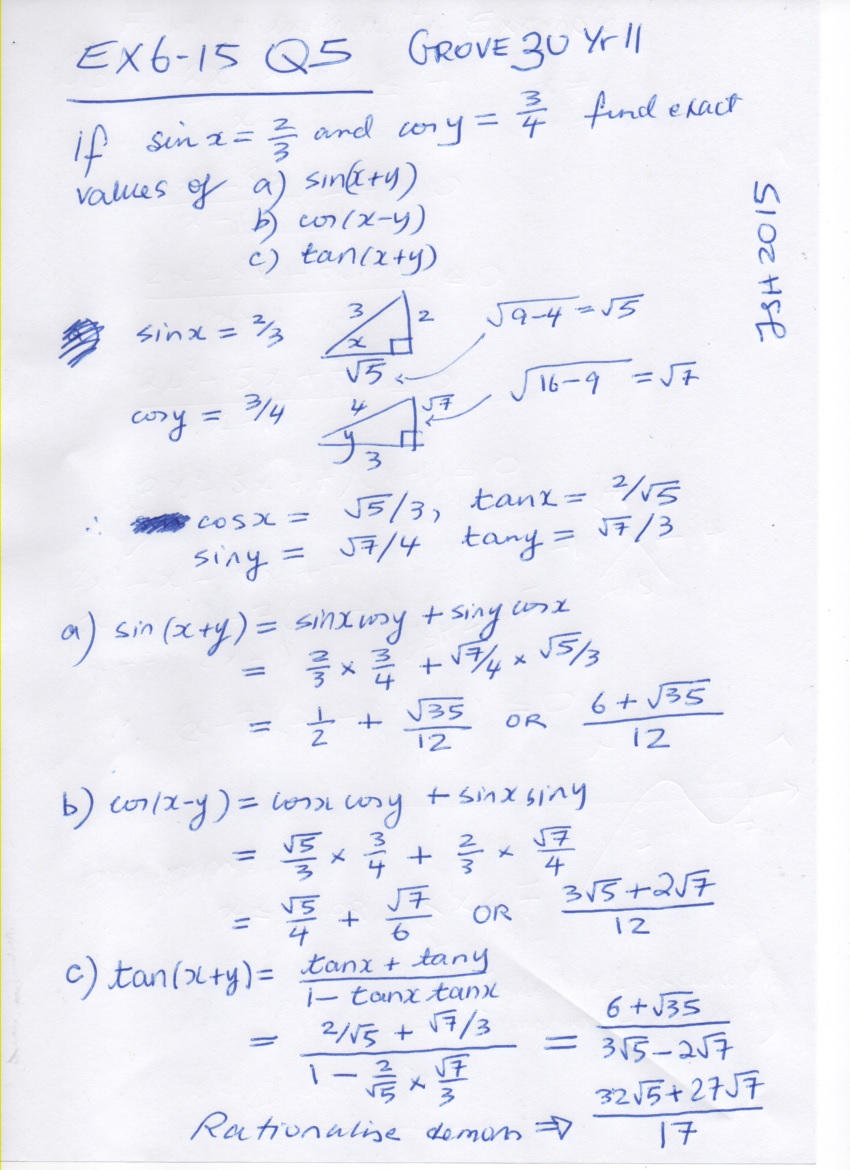 EX6-15 Q5 GROVE 3U Yr 11
if sin x = 2/3 and cos y = 3/4 find exact
values of a) sin(x+y)
b) cos(x-y)
c) tan(x+y)
JSH 2015
sin x = 2/3
3 2
x
√5
√9-4 = √5
cos y = 3/4
4 √7
y
3
√16-9 = √7
∴ cos x = √5/3, tan x = 2/√5
sin y = √7/4 tan y = √7/3
a) sin(x+y) = sin x cos y + sin y cos x
= 2/3 × 3/4 + √7/4 × √5/3
= 1/2 + √35/12 OR (6+√35)/12
b) cos(x-y) = cos x cos y + sin x sin y
= √5/3 × 3/4 + 2/3 × √7/4
= √5/4 + √7/6 OR (3√5+2√7)/12
c) tan(x+y) = (tan x + tan y)/(1 - tan x tan x)
= (2/√5 + √7/3)/(1 - 2/√5 × √7/3) = (6+√35)/(3√5-2√7)
Rationalise denom ⇒ (32√5+27√7)/17